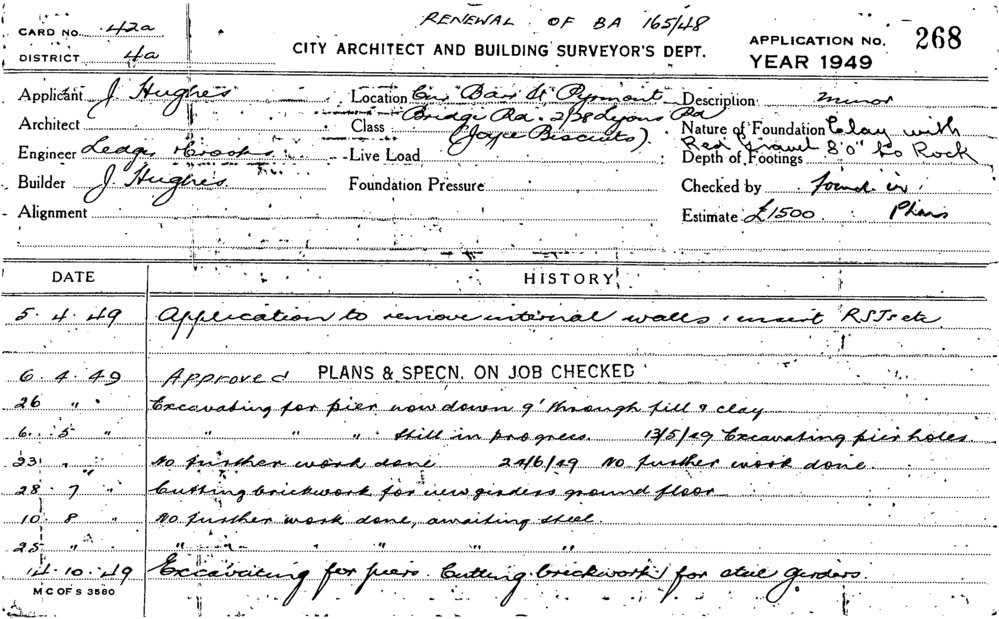 RENEWAL OF BA 165/48
CARD NO. 42a
CITY ARCHITECT AND BUILDING SURVEYOR'S DEPT.
APPLICATION NO. 268
DISTRICT 4a
YEAR 1949
Applicant J Hughes
Location Cnr Barr St Pyrmont
Description minor
Architect
Bridge Rd. 2/38 Lyons Rd
Class (Joyce Biscuits).
Nature of Foundation Clay with
Red Gravel 8'0" to Rock
Engineer
Live Load
Depth of Footings
Builder J. Hughes
Foundation Pressure
Checked by found in
Alignment
Estimate £1500 Plans
DATE HISTORY
5.4.49 Application to remove internal walls & insert RSJs etc
6.4.49 Approved PLANS & SPECN. ON JOB CHECKED
26 " " Excavating for pier now down 9' through fill & clay
6. 5 " " " " Still in progress. 13/5/49 Excavating pier holes.
23 " " No further work done 24/6/49 No further work done.
28. 7 " Cutting brickwork for new girders ground floor
10 8 " No further work done, awaiting steel.
25 " " " " " " "
14.10.49 Excavating for piers. Cutting brickwork for steel girders.
M C OF S 3580